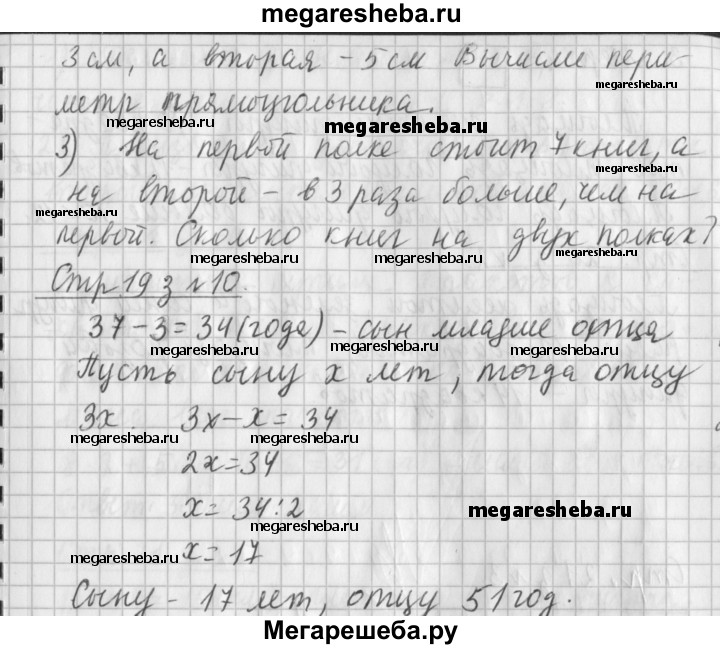 megaresheba.ru
3 см, а вторая - 5 см Вычисли пери-
megaresheba.ru
метр прямоугольника.
megaresheba.ru megaresheba.ru
3) На первой полке стоит 7 книг, а
megaresheba.ru
на второй - в 3 раза больше, чем на
megaresheba.ru
первой. Сколько книг на двух полках?
megaresheba.ru megaresheba.ru megaresheba.ru
Стр 19 з №10.
37-3=34(года) - сын младше отца
megaresheba.ru megaresheba.ru megaresheba.ru
Пусть сыну x лет, тогда отцу
3x. 3x-x=34
megaresheba.ru megaresheba.ru megaresheba.ru
2x=34
x=34:2
megaresheba.ru
megaresheba.ru
megaresheba.ru
x=17
Сыну - 17 лет, отцу 51 год.
megaresheba.ru
Мегарешеба.ру